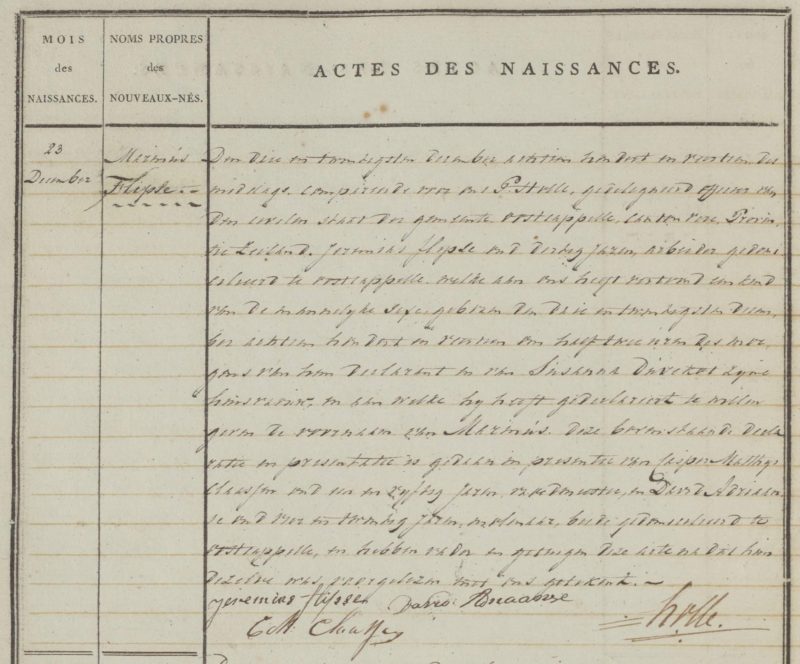 MOIS
des
NAISSANCES.
NOMS PROPRES
des
NOUVEAUX-NÉS.
ACTES DES NAISSANCES.
23
December
Marinus
Flipse
Den drie en twendigsten december achtien hondert en veertien des
middags. compareerde voor ons P. Holle, gedelegueerd officier van
den civilen staat der gemeente oostcappelle, canton vere, Provin
tie Zeeland. Jeremias flipse oud dertig jaren, arbeider gedomi
cileerd te oostcappelle. welke aan ons heeft vertoond een kind
van de mannelyke sexe, geboren den drie en twendigsten decem
ber achtien hondert en veertien om half twee uren des mor
gens van hem declarant en van Susanna zyne
huisvrouw, en aan welke hy heeft gedeclareert te willen
geven de voornaam van Marinus. deze bovenstaande decla
ratie en presentatie is gedaan in presentie van Casper Mathys
Claassen oud een en vyftig jaren, vroedmeester, en David Adriaan
se oud vier en twendig jaren, molenaar, beide gedomicileerd te
oostcappelle, en hebben vader en getuigen deze acte na dat hun
dezelve was voorgelezen met ons getekent.
Jeremias flipse David Adriaanse
C M Claassen
Holle.